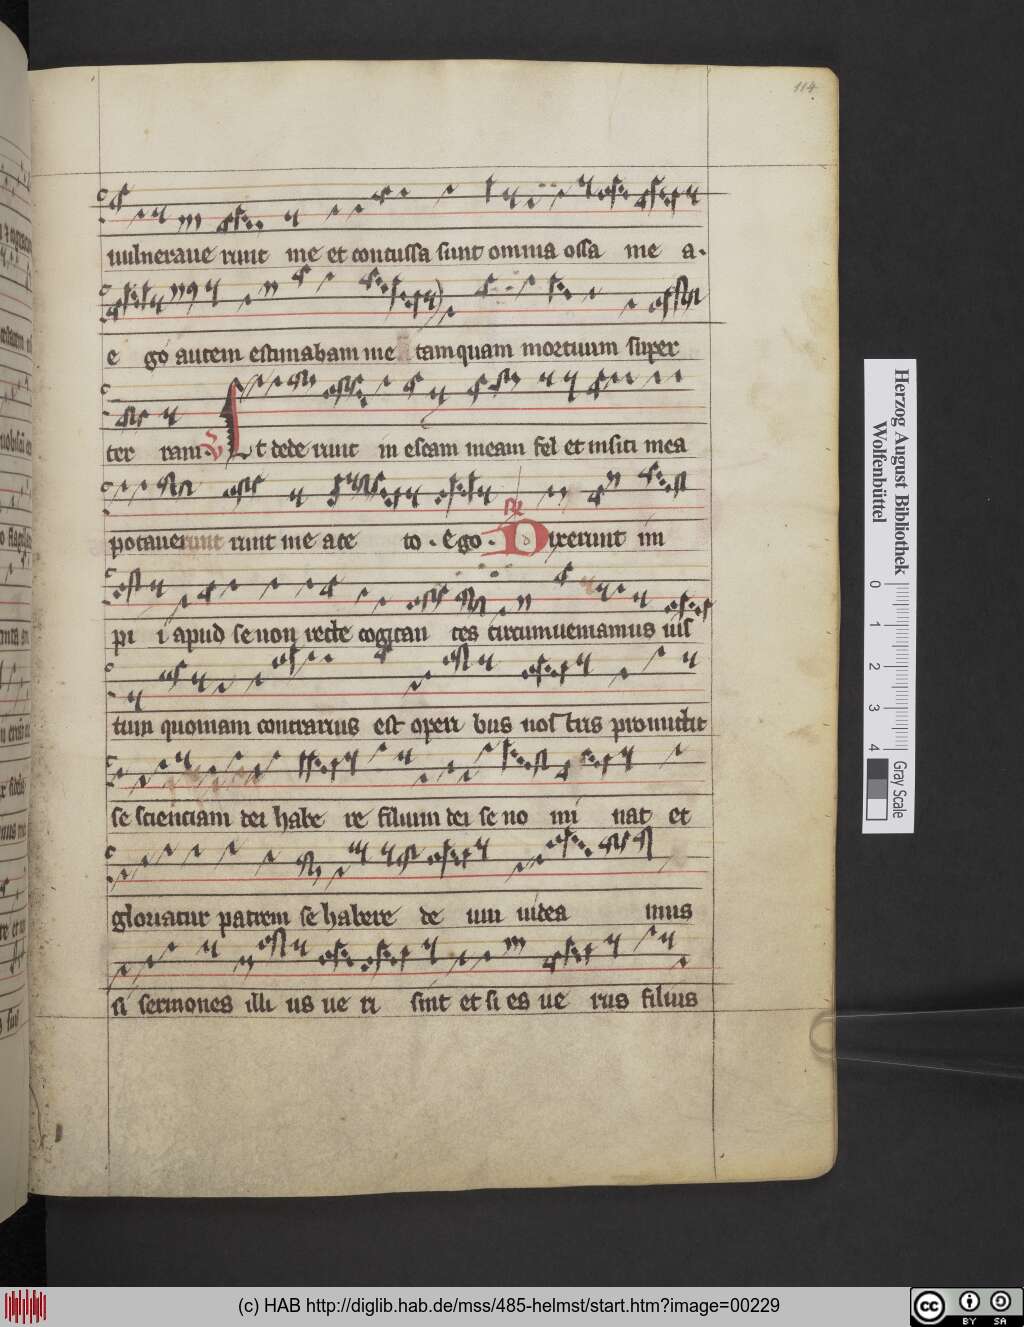 114
uulneraue runt me et concussa sunt omnia ossa me a.
e go autem estimabam me tamquam mortuum super
ter ram. Et dede runt in escam meam fel et in siti mea
potaue runt me ace to. Ego. R Dixerunt im
pi i apud se non recte cogitan tes circumueniamus ius
tum quoniam contrarius est operi bus nostris promittit
se scienciam dei habe re filium dei se no mi nat et
gloriatur patrem se habere de um uidea mus
si sermones illi us ue ri sint et si es ue rus filius
Herzog August Bibliothek
Wolfenbüttel
0 1 2 3 4
Gray Scale
(c) HAB http://diglib.hab.de/mss/485-helmst/start.htm?image=00229
cc BY SA